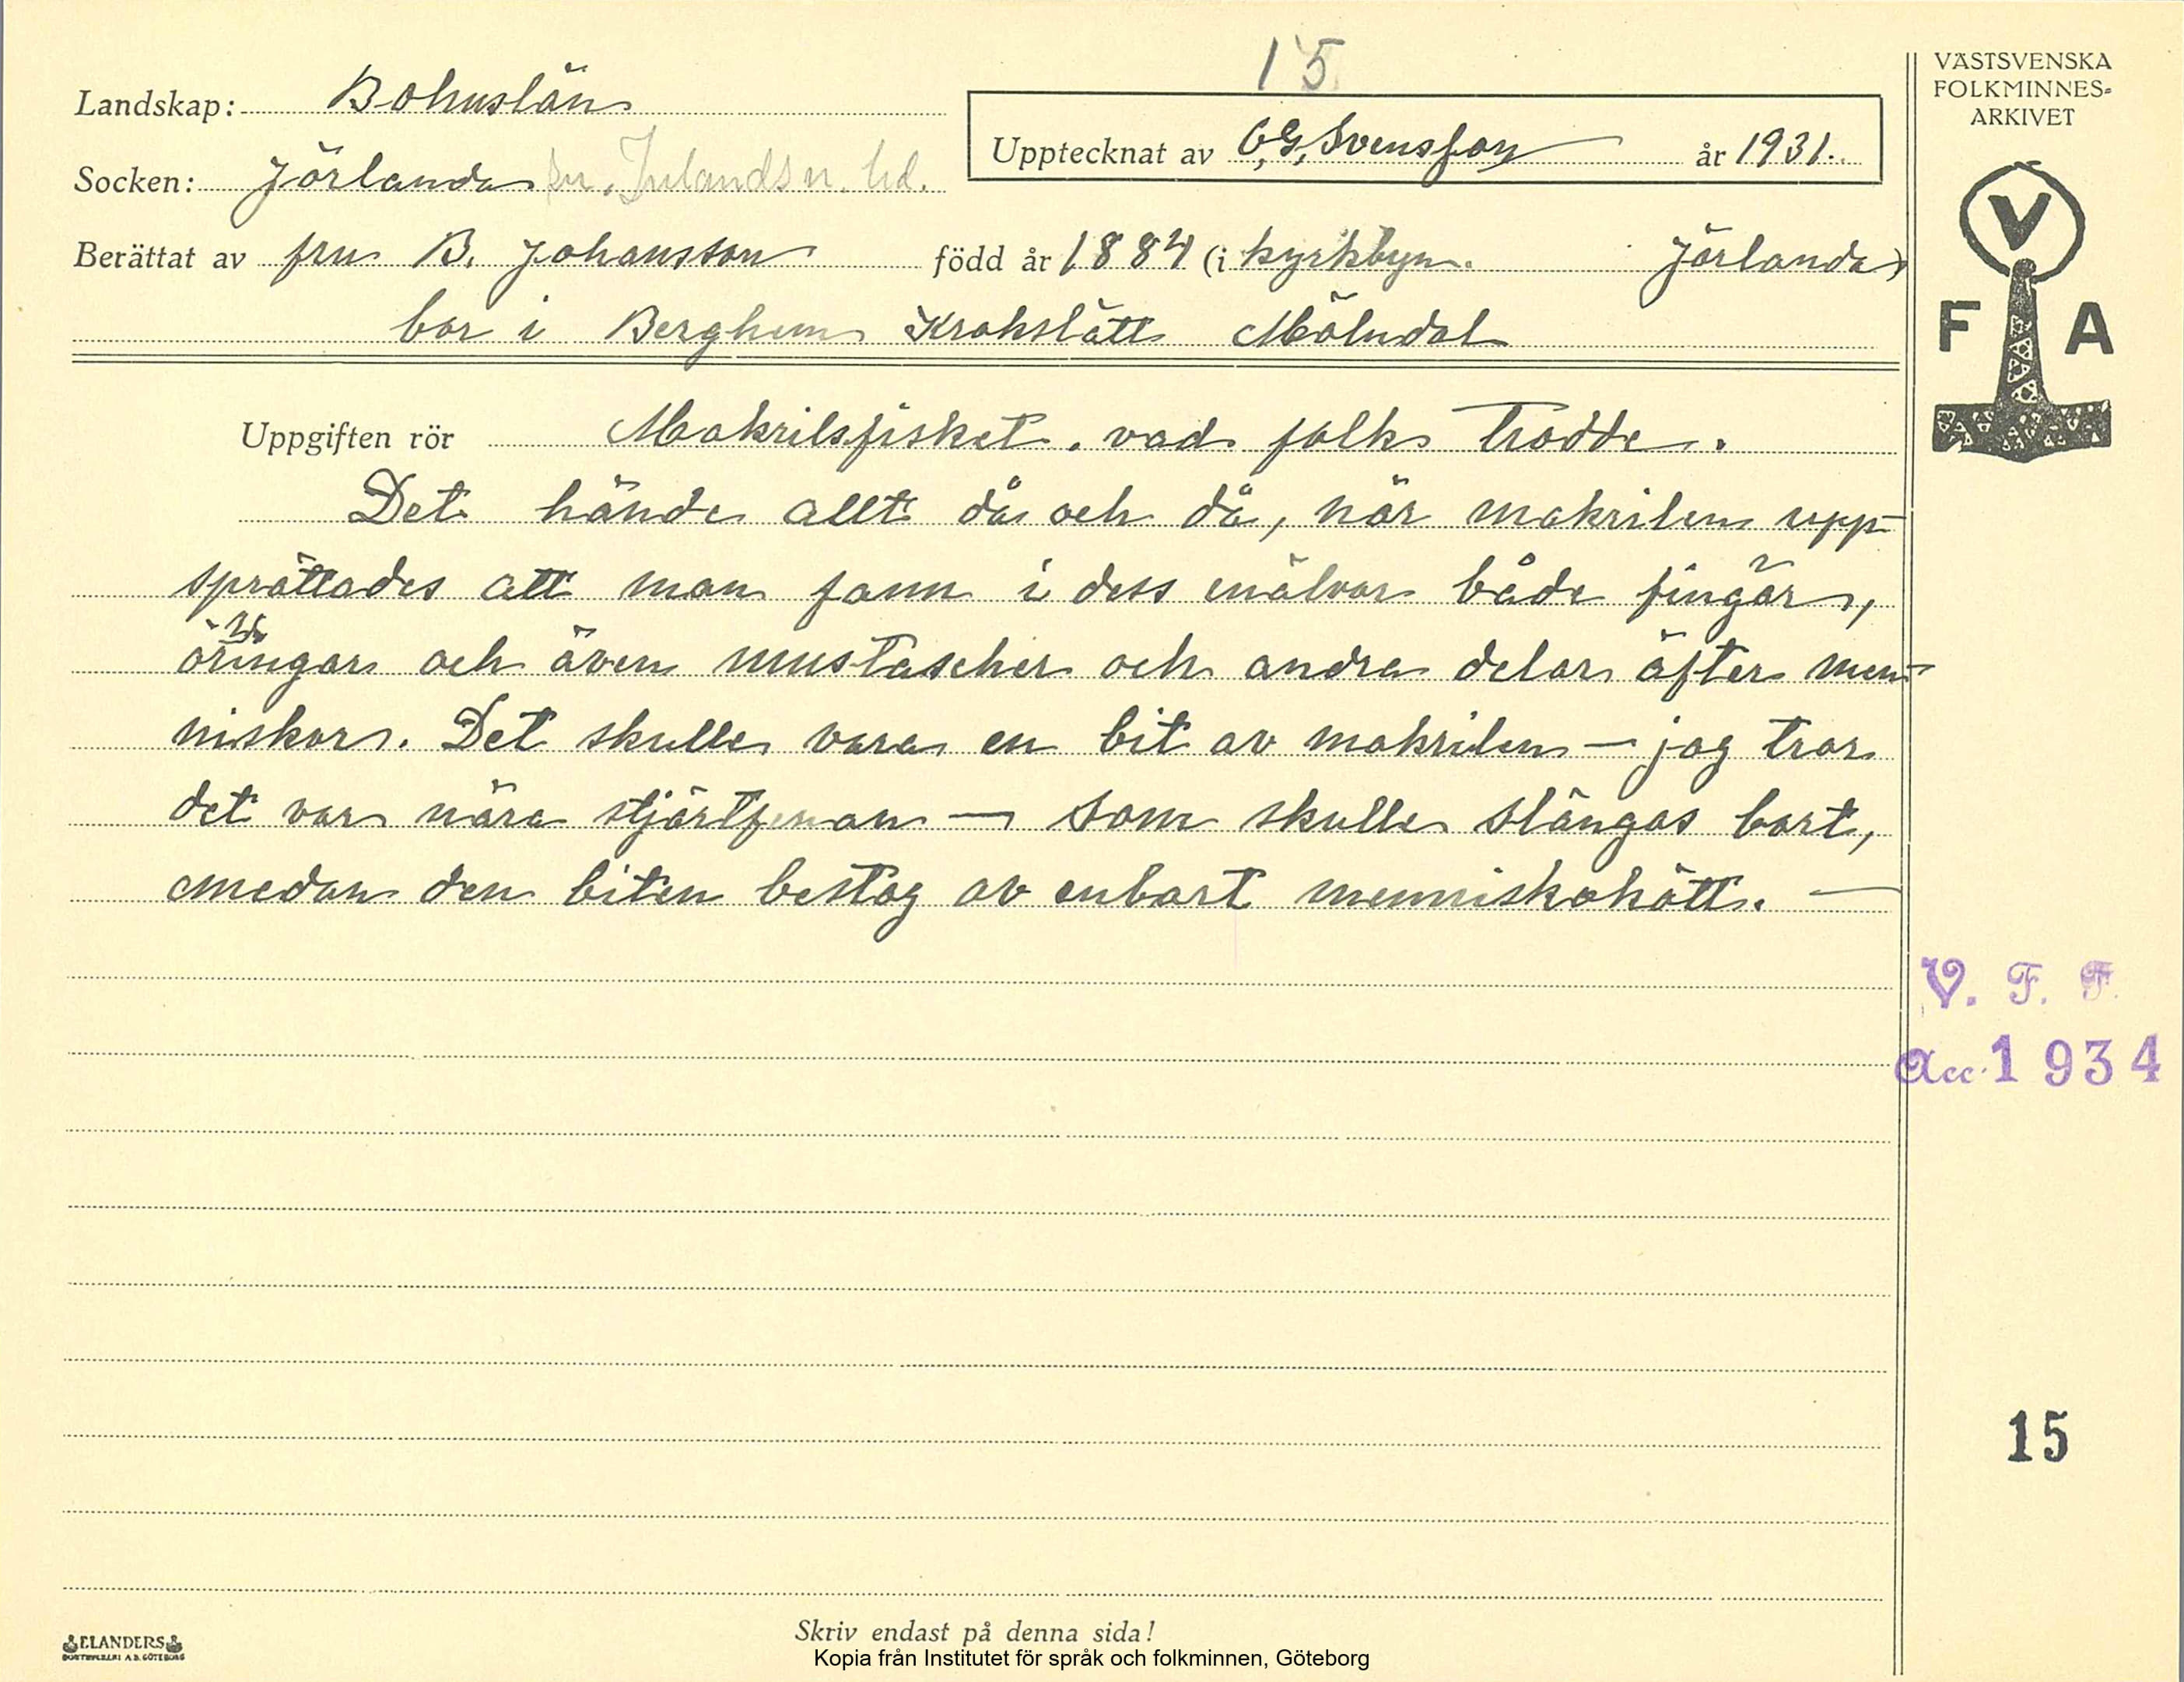 15
Landskap: Bohuslän
VÄSTSVENSKA
FOLKMINNES-
ARKIVET
Upptecknat av C,G, Svensson år 1931.
Socken: Jörlanda sn. Inlands n. hd.
Berättat av fru B. Johansson född år 1884 (i kyrkbyn. Jörlanda)
bor i Berghem Krokslätt Mölndal
V
F A
Uppgiften rör Makrilsfisket. vad folk trodde.
Det hände allt då och då, när makrilen upp-
sprättades att man fann i dess inälvor både fingär,
öringar och även mustascher och andra delar äfter men-
niskor. Det skulle vara en bit av makrilen – jag tror
det var nära stjärtfenan – som skulle slängas bort,
medan den biten bestog av enbart menniskokött. —
V. F. F.
Acc. 1934
15
Skriv endast på denna sida!
ELANDERS
BOKTRYCKERI A.B. GÖTEBORG
Kopia från Institutet för språk och folkminnen, Göteborg